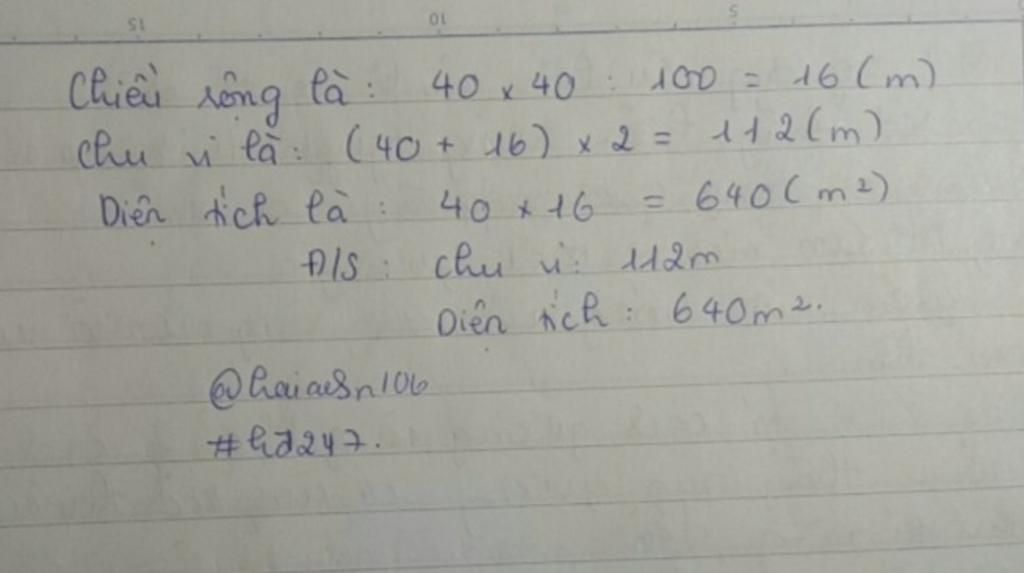 15 10 5
Chiều rộng là : 40 x 40 : 100 = 16 (m)
Chu vi là : (40 + 16) x 2 = 112 (m)
Diện tích là : 40 x 16 = 640 (m²)
Đ/S : Chu vi : 112m
Diện tích : 640m².
#hd247.